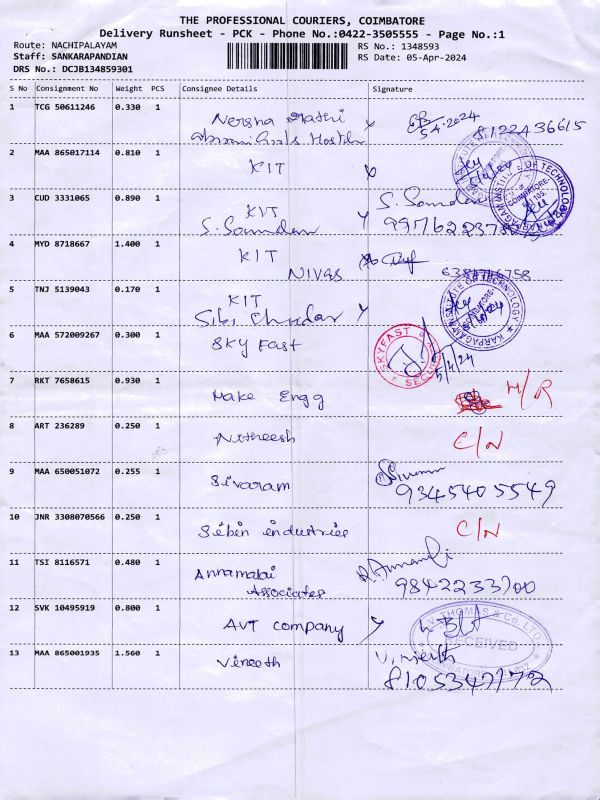 THE PROFESSIONAL COURIERS, COIMBATORE
Delivery Runsheet - PCK - Phone No.:0422-3505555 - Page No.:1
Route: NACHIPALAYAM
Staff: SANKARAPANDIAN
DRS No.: DCJB134859301
RS No.: 1348593
RS Date: 05-Apr-2024
S No Consignment No Weight PCS Consignee Details Signature
1 TCG 50611246 0.330 1
5.4.2024
2 MAA 865017114 0.810 1 KIT
3 CUD 3331065 0.890 1 KIT S. Soundar
S. Soundar
4 MYD 8718667 1.400 1 KIT
NIVAS
5 TNJ 5139043 0.170 1 KIT
INSTITUTE OF TECHNOLOGY
KARPAGAM
COIMBATORE
6 MAA 572009267 0.300 1 SKY Fast SKYFAST 5/4/24
7 RKT 7658615 0.930 1 Make Engg
8 ART 236289 0.250 1 Nitheesh C/N
9 MAA 650051072 0.255 1 Sivaram
9345405549
10 JNR 3308070566 0.250 1 Sebin industries C/N
11 TSI 8116571 0.480 1 Annamalai
Associates 9842233700
12 SVK 10495919 0.800 1 AVT Company
A.V. THOMAS & Co. LTD.
RECEIVED
13 MAA 865001935 1.560 1 Vineeth
8105347172